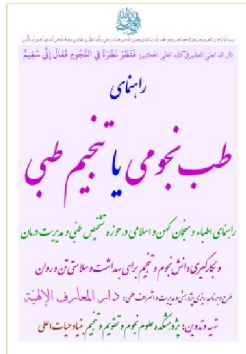 قال الله العلي العظیم فی کتابه العلی الحکیم: فَنَظَرَ نَظْرَةً فِي النُّجُومِ فَقَالَ إِنِّي سَقِيمٌ
راهنمای
طب نجومی یا تنجیم طبی
راهنمای اطباء و منجمان کهن و اسلامی در حوزه تشخیص طبی و مدیریت درمان
و بکارگیری دانش نجوم و تنجیم برای بهداشت و سلامتی تن و روان
طرح و برنامه ریزی پژوهشی و مدیریت و اشراف علمی: دار المعارف الإلهیة
تهیه و تدوین: پژوهشکده علوم نجوم و تقویم و تنجیم بنیاد حیات اعلی